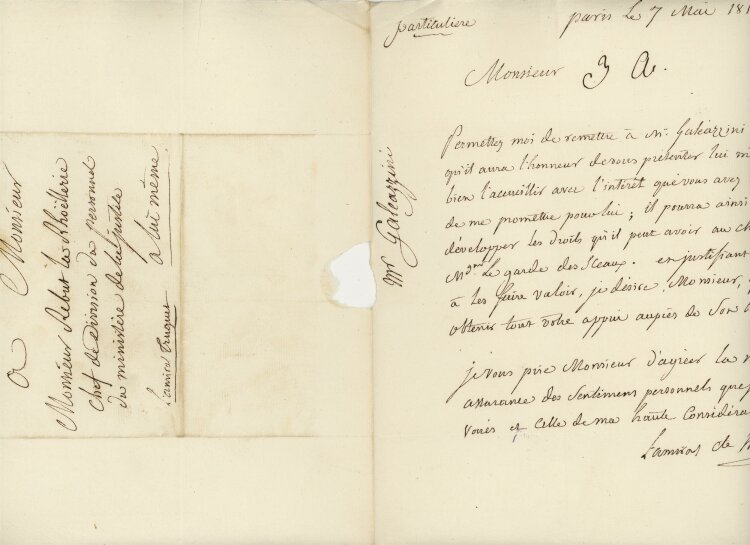 A Monsieur
Monsieur Rebut la Rhoëllerie
Chef de Division du Personnel
du ministère de la justice
à lui même
L'amiral Truguet
Mr Galeazzini
particuliere
paris le 7 Mai 181
Monsieur
Permettez moi de remettre à Mr. Galeazzini
qu'il aura l'honneur de vous présenter lui m
bien l'accueillir avec l'intéret que vous avez
de me promettre pour lui ; il pourra ainsi
développer les droits qu'il peut avoir au ch
Mgnr le garde des Sceaux. en justifiant
à les faire valoir, je désire, Monsieur,
obtenir tout votre appui auprès de Son
je vous prie Monsieur d'agréer la
assurance des Sentimens personnels que
voués et Celle de ma haute Considéra
L'amiral de